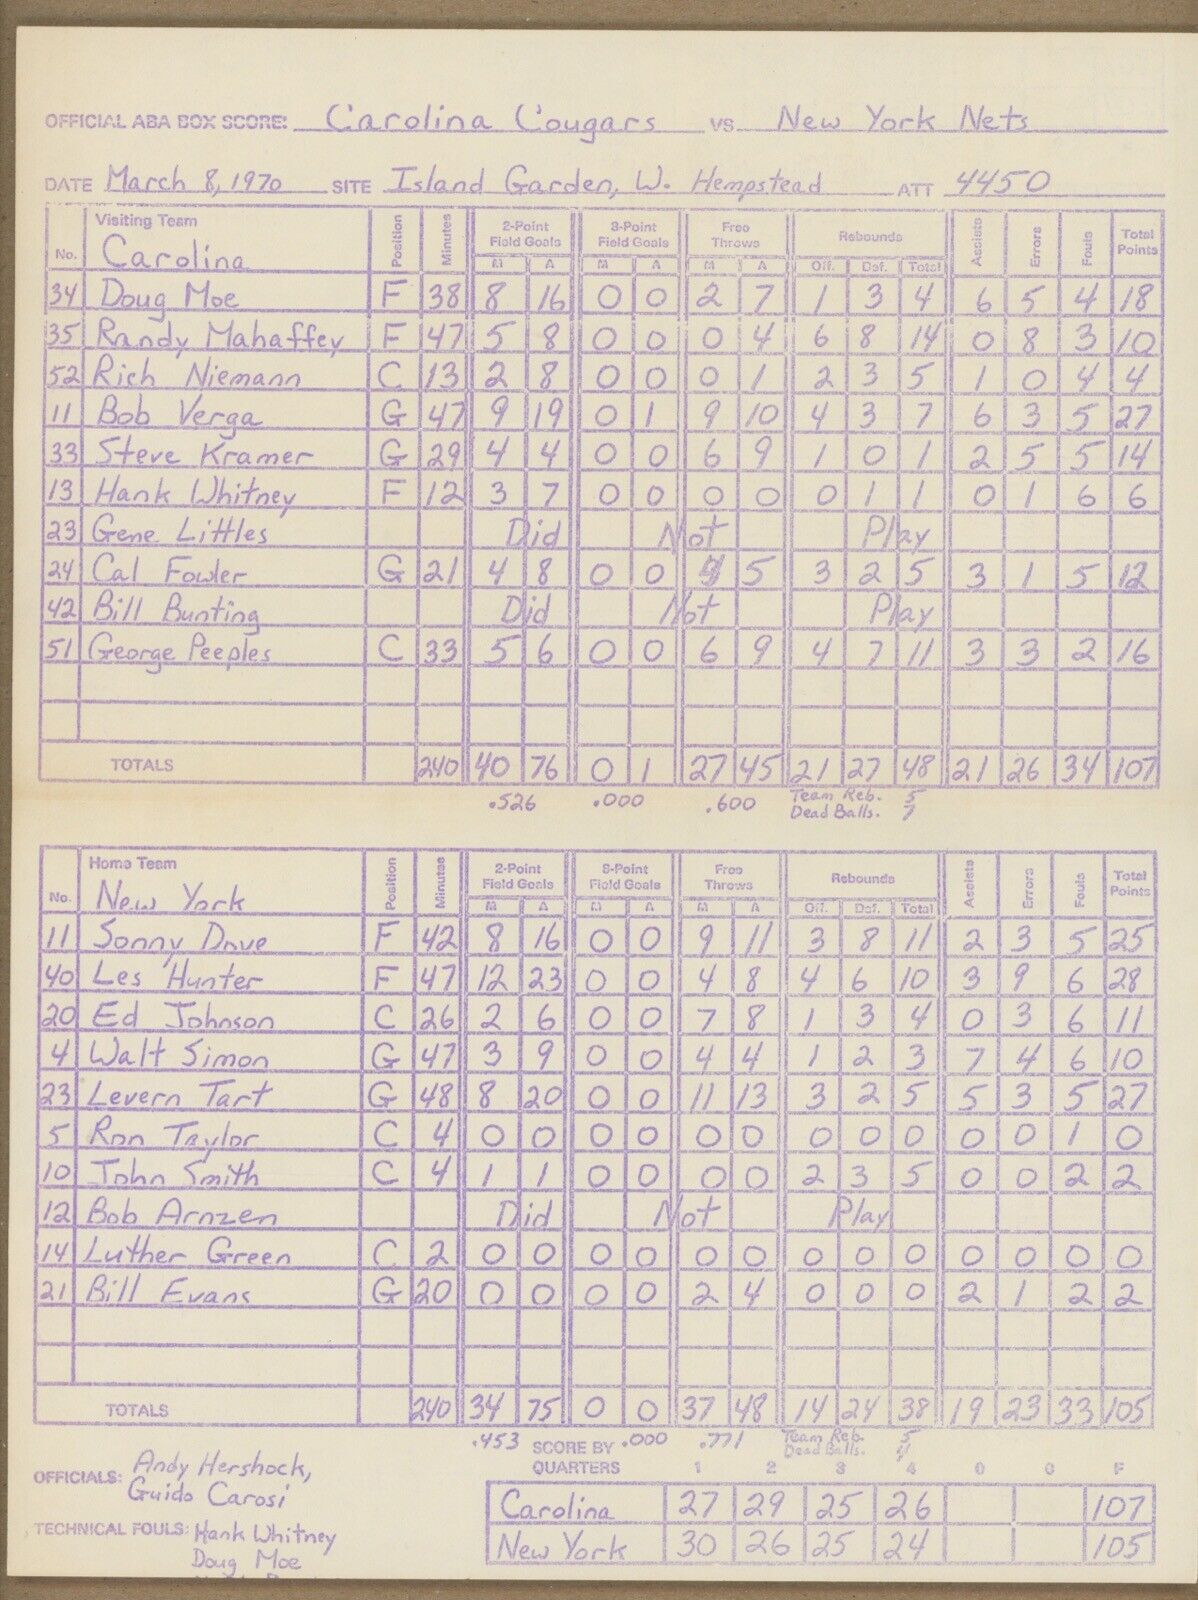 OFFICIAL ABA BOX SCORE: Carolina Cougars VS New York Nets
DATE March 8, 1970 SITE Island Garden, W. Hempstead ATT 4450
No. Visiting Team Carolina Position Minutes 2-Point Field Goals M A 3-Point Field Goals M A Free Throws M A Rebounds Off. Def. Total Assists Errors Fouls Total Points
34 Doug Moe F 38 8 16 0 0 2 7 1 3 4 6 5 4 18
35 Randy Mahaffey F 47 5 8 0 0 0 4 6 8 14 0 8 3 10
52 Rich Niemann C 13 2 8 0 0 0 1 2 3 5 1 0 4 4
11 Bob Verga G 47 9 19 0 1 9 10 4 3 7 6 3 5 27
33 Steve Kramer G 29 4 4 0 0 6 9 1 0 1 2 5 5 14
13 Hank Whitney F 12 3 7 0 0 0 0 0 1 1 0 1 6 6
23 Gene Littles Did Not Play
24 Cal Fowler G 21 4 8 0 0 4 5 3 2 5 3 1 5 12
42 Bill Bunting Did Not Play
51 George Peeples C 33 5 6 0 0 6 9 4 7 11 3 3 2 16
TOTALS 240 40 76 0 1 27 45 21 27 48 21 26 34 107
.526 .000 .600 Team Reb. 5
Dead Balls. 7
No. Home Team New York Position Minutes 2-Point Field Goals M A 3-Point Field Goals M A Free Throws M A Rebounds Off. Def. Total Assists Errors Fouls Total Points
11 Sonny Dove F 42 8 16 0 0 9 11 3 8 11 2 3 5 25
40 Les Hunter F 47 12 23 0 0 4 8 4 6 10 3 9 6 28
20 Ed Johnson C 26 2 6 0 0 7 8 1 3 4 0 3 6 11
4 Walt Simon G 47 3 9 0 0 4 4 1 2 3 7 4 6 10
23 Levern Tart G 48 8 20 0 0 11 13 3 2 5 5 3 5 27
5 Ron Taylor C 4 0 0 0 0 0 0 0 0 0 0 0 1 0
10 John Smith C 4 1 1 0 0 0 0 2 3 5 0 0 2 2
12 Bob Arnzen Did Not Play
14 Luther Green C 2 0 0 0 0 0 0 0 0 0 0 0 0 0
21 Bill Evans G 20 0 0 0 0 2 4 0 0 0 2 1 2 2
TOTALS 240 34 75 0 0 37 48 14 24 38 19 23 33 105
.453 .000 .771 Team Reb. 5
Dead Balls. 4
OFFICIALS: Andy Hershock,
Guido Carosi
TECHNICAL FOULS: Hank Whitney
Doug Moe
SCORE BY QUARTERS 1 2 3 4 0 0 F
Carolina 27 29 25 26 107
New York 30 26 25 24 105